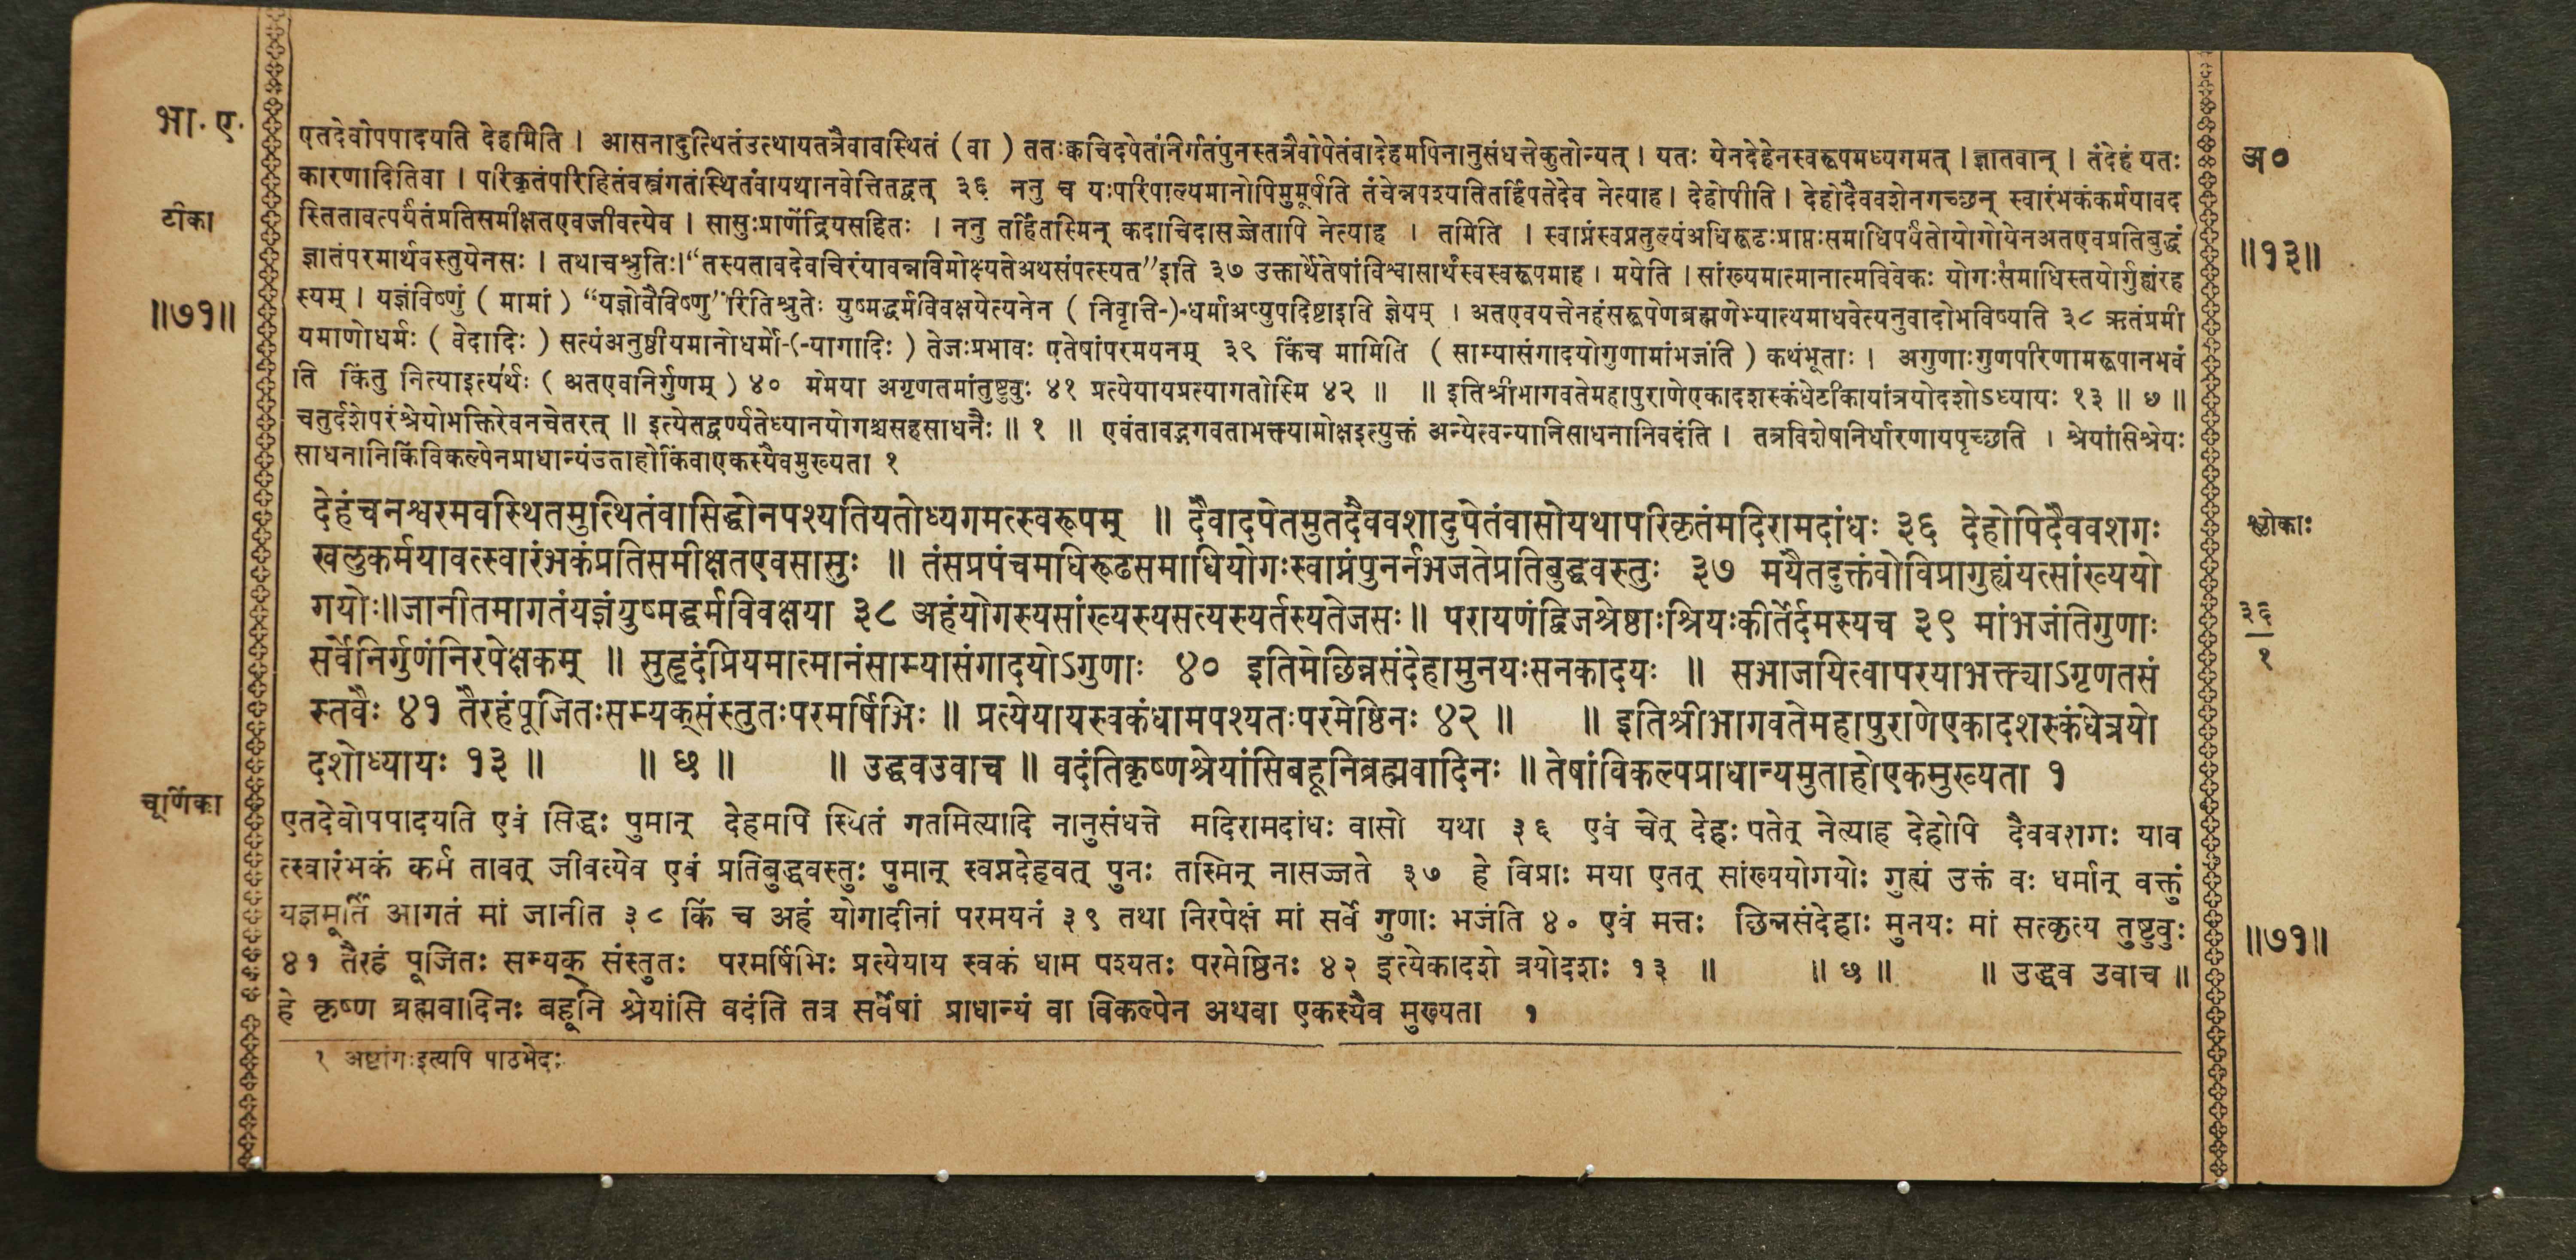 भा. ए.
टीका
॥७१॥
एतदेवोपपादयति देहमिति । आसनादुत्थितंउत्थायतत्रैवावस्थितं (वा) ततःक्वचिदपेतंनिर्गतंपुनस्तत्रैवोपेतंवादेहमपिनानुसंधत्तेकुतोन्यत् । यतः येनदेहेनस्वरूपमध्यगमत् । ज्ञातवान् । तंदेहं यतः
कारणादितिवा । परिकृतंपरिहितंवस्त्रंगतंस्थितंवायथानवेत्तितद्वत् ३६ ननु च यःपरिपाल्यमानोपिमुमूर्षति तंचेन्नपश्यतितर्हिपतेदेव नेत्याह । देहोपीति । देहोदैववशेनगच्छन् स्वारंभकंकर्मयावद
स्तितावत्पर्यंतंप्रतिसमीक्षतएवजीवत्येव । सासुःप्राणेंद्रियसहितः । ननु तर्हितस्मिन् कदाचिदासज्जेतापि नेत्याह । तमिति । स्वाप्नंस्वप्नतुल्यंअधिरूढःप्राप्तःसमाधिपर्यंतोयोगोयेनअतएवप्रतिबुद्धं
ज्ञातंपरमार्थवस्तुयेनसः । तथाचश्रुतिः।“तस्यतावदेवचिरंयावन्नविमोक्ष्यतेअथसंपत्स्यत”इति ३७ उक्तार्थेतेषांविश्वासार्थंस्वस्वरूपमाह । मयेति । सांख्यमात्मानात्मविवेकः योगःसमाधिस्तयोर्गुह्यंरह
स्यम् । यज्ञंविष्णुं ( मामां ) “यज्ञोवैविष्णु”रितिश्रुतेः युष्मद्धर्मविवक्षयेत्यनेन ( निवृत्ति-)-धर्माअप्युपदिष्टाइति ज्ञेयम् । अतएवयत्तेनहंसरूपेणब्रह्मणेभ्यात्यमाधवेत्यनुवादोभविष्यति ३८ ऋतंप्रमी
यमाणोधर्मः ( वेदादिः ) सत्यंअनुष्ठीयमानोधर्मो-(-यागादिः ) तेजःप्रभावः एतेषांपरमयनम् ३९ किंच मामिति ( साम्यासंगादयोगुणामांभजंति ) कथंभूताः । अगुणाःगुणपरिणामरूपानभवं
ति किंतु नित्याइत्यर्थः ( अतएवनिर्गुणम् ) ४० मेमया अगृणतमांतुष्टुवुः ४१ प्रत्येयायप्रत्यागतोस्मि ४२ ॥ ॥ इतिश्रीभागवतेमहापुराणेएकादशस्कंधेटीकायांत्रयोदशोऽध्यायः १३ ॥ ७ ॥
चतुर्दशेपरंश्रेयोभक्तिरेवनचेतरत् ॥ इत्येतद्वर्ण्यतेध्यानयोगश्चसहसाधनैः ॥ १ ॥ एवंतावद्भगवताभक्त्यामोक्षइत्युक्तं अन्येत्वन्यानिसाधनानिवदंति । तत्रविशेषनिर्धारणायपृच्छति । श्रेयांसिश्रेयः
साधनानिकिंविकल्पेनप्राधान्यंउताहोकिंवाएकस्यैवमुख्यता १
देहंचनश्वरमवस्थितमुत्थितंवासिद्धोनपश्यतियतोध्यगमत्स्वरूपम् ॥ दैवादपेतमुतदैववशादुपेतंवासोयथापरिकृतंमदिरामदांधः ३६ देहोपिदैववशगः
खलुकर्मयावत्स्वारंभकंप्रतिसमीक्षतएवसासुः ॥ तंसप्रपंचमधिरूढसमाधियोगःस्वाप्नंपुनर्नभजतेप्रतिबुद्धवस्तुः ३७ मयैतदुक्तंवोविप्रागुह्यंयत्सांख्ययो
गयोः॥जानीतमागतंयज्ञंयुष्मद्धर्मविवक्षया ३८ अहंयोगस्यसांख्यस्यसत्यस्यर्तस्यतेजसः॥ परायणंद्विजश्रेष्ठाःश्रियःकीर्तेर्दमस्यच ३९ मांभजंतिगुणाः
सर्वेनिर्गुणंनिरपेक्षकम् ॥ सुहृदंप्रियमात्मानंसाम्यासंगादयोऽगुणाः ४० इतिमेछिन्नसंदेहामुनयःसनकादयः ॥ सभाजयित्वापरयाभक्त्याऽगृणतसं
स्तवैः ४१ तैरहंपूजितःसम्यक्संस्तुतःपरमर्षिभिः ॥ प्रत्येयायस्वकंधामपश्यतःपरमेष्ठिनः ४२ ॥ ॥ इतिश्रीभागवतेमहापुराणेएकादशस्कंधेत्रयो
दशोध्यायः १३ ॥ ॥ छ ॥ ॥ उद्धवउवाच ॥ वदंतिकृष्णश्रेयांसिबहूनिब्रह्मवादिनः ॥ तेषांविकल्पप्राधान्यमुताहोएकमुख्यता १
चूर्णिका
एतदेवोपपादयति एवं सिद्धः पुमान् देहमपि स्थितं गतमित्यादि नानुसंधत्ते मदिरामदांधः वासो यथा ३६ एवं चेत् देहः पतेत् नेत्याह देहोपि दैववशगः याव
त्स्वारंभकं कर्म तावत् जीवत्येव एवं प्रतिबुद्धवस्तुः पुमान् स्वप्नदेहवत् पुनः तस्मिन् नासज्जते ३७ हे विप्राः मया एतत् सांख्ययोगयोः गुह्यं उक्तं वः धर्मान् वक्तुं
यज्ञमूर्तिं आगतं मां जानीत ३८ किं च अहं योगादीनां परमयनं ३९ तथा निरपेक्षं मां सर्वे गुणाः भजंति ४० एवं मत्तः छिन्नसंदेहाः मुनयः मां सत्कृत्य तुष्टुवुः
४१ तैरहं पूजितः सम्यक् संस्तुतः परमर्षिभिः प्रत्येयाय स्वकं धाम पश्यतः परमेष्ठिनः ४२ इत्येकादशे त्रयोदशः १३ ॥ ॥ छ ॥ ॥ उद्धव उवाच ॥
हे कृष्ण ब्रह्मवादिनः बहूनि श्रेयांसि वदंति तत्र सर्वेषां प्राधान्यं वा विकल्पेन अथवा एकस्यैव मुख्यता १
१ अष्टांगःइत्यपि पाठभेदः
अ०
॥१३॥
श्लोकाः
३६
१
॥७१॥